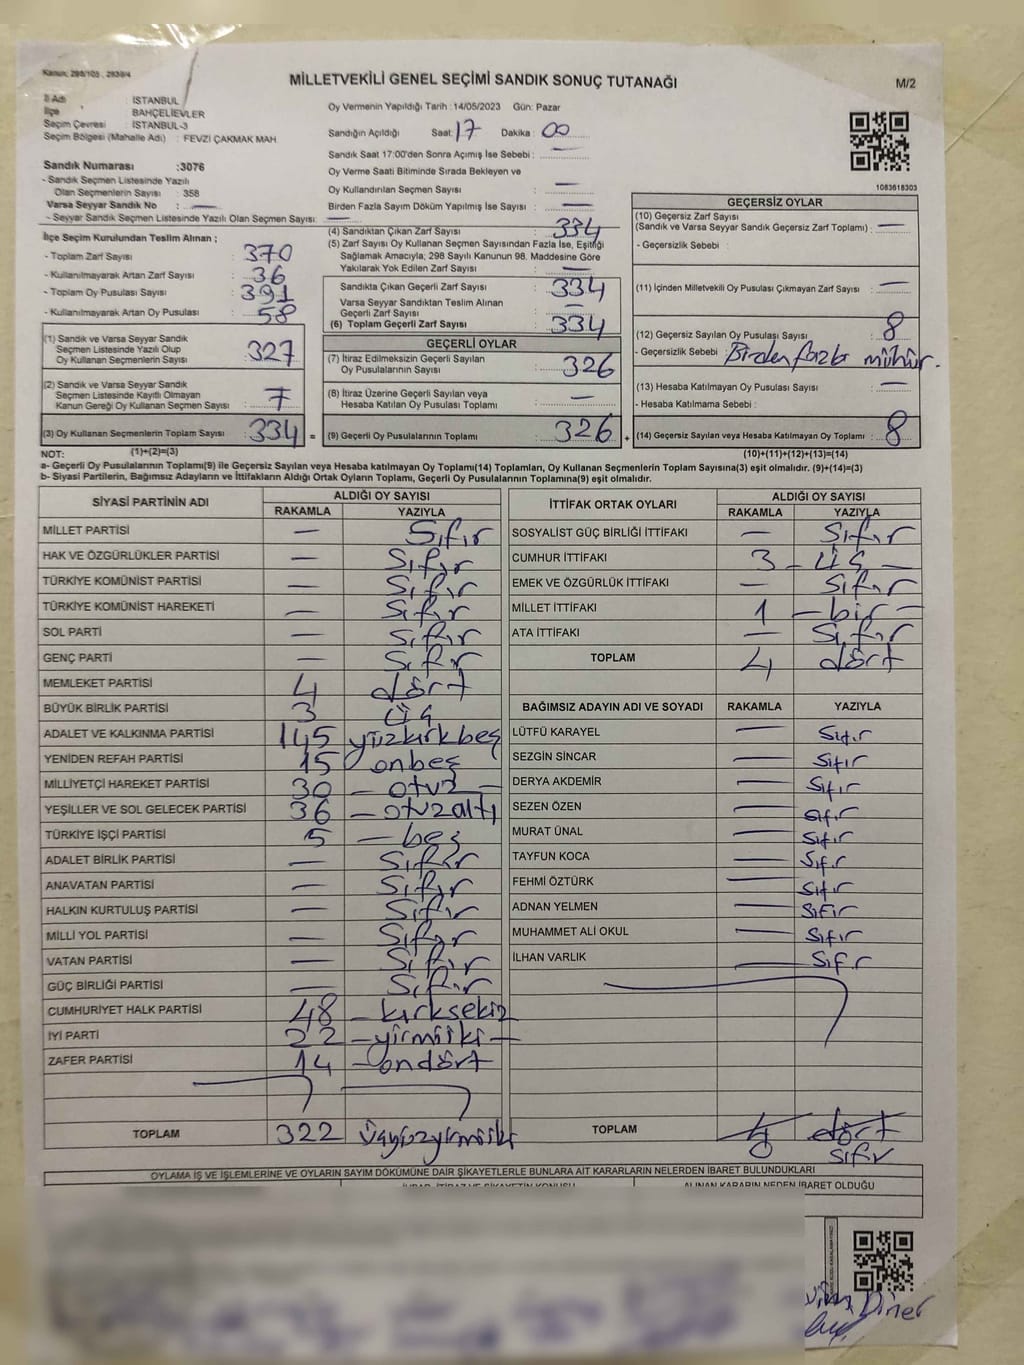 Kanun: 298/105 , 2839/4
MİLLETVEKİLİ GENEL SEÇİMİ SANDIK SONUÇ TUTANAĞI
M/2
İl Adı : İSTANBUL
İlçe : BAHÇELİEVLER
Seçim Çevresi : İSTANBUL-3
Seçim Bölgesi (Mahalle Adı) : FEVZİ ÇAKMAK MAH
Sandık Numarası :3076
- Sandık Seçmen Listesinde Yazılı
Olan Seçmenlerin Sayısı : 358
Varsa Seyyar Sandık No : —
- Seyyar Sandık Seçmen Listesinde Yazılı Olan Seçmen Sayısı: —
Oy Vermenin Yapıldığı Tarih : 14/05/2023 Gün: Pazar
Sandığın Açıldığı Saat: 17 Dakika : 00
Sandık Saat 17:00'den Sonra Açılmış İse Sebebi : —
Oy Verme Saati Bitiminde Sırada Bekleyen ve
Oy Kullandırılan Seçmen Sayısı : —
Birden Fazla Sayım Döküm Yapılmış İse Sayısı : —
1083618303
İlçe Seçim Kurulundan Teslim Alınan ;
- Toplam Zarf Sayısı : 370
- Kullanılmayarak Artan Zarf Sayısı : 36
- Toplam Oy Pusulası Sayısı : 391
- Kullanılmayarak Artan Oy Pusulası : 58
(1) Sandık ve Varsa Seyyar Sandık
Seçmen Listesinde Yazılı Olup
Oy Kullanan Seçmenlerin Sayısı : 327
(2) Sandık ve Varsa Seyyar Sandık
Seçmen Listesinde Kayıtlı Olmayan
Kanun Gereği Oy Kullanan Seçmen Sayısı : 7
(3) Oy Kullanan Seçmenlerin Toplam Sayısı : 334 =
(1)+(2)=(3)
(4) Sandıktan Çıkan Zarf Sayısı : 334
(5) Zarf Sayısı Oy Kullanan Seçmen Sayısından Fazla İse, Eşitliği
Sağlamak Amacıyla; 298 Sayılı Kanunun 98. Maddesine Göre
Yakılarak Yok Edilen Zarf Sayısı : —
Sandıkta Çıkan Geçerli Zarf Sayısı : 334
Varsa Seyyar Sandıktan Teslim Alınan
Geçerli Zarf Sayısı : —
(6) Toplam Geçerli Zarf Sayısı : 334
GEÇERLİ OYLAR
(7) İtiraz Edilmeksizin Geçerli Sayılan
Oy Pusulalarının Sayısı : 326
(8) İtiraz Üzerine Geçerli Sayılan veya
Hesaba Katılan Oy Pusulası Toplamı : —
(9) Geçerli Oy Pusulalarının Toplamı : 326 +
GEÇERSİZ OYLAR
(10) Geçersiz Zarf Sayısı
(Sandık ve Varsa Seyyar Sandık Geçersiz Zarf Toplamı) : —
- Geçersizlik Sebebi :
(11) İçinden Milletvekili Oy Pusulası Çıkmayan Zarf Sayısı : —
(12) Geçersiz Sayılan Oy Pusulası Sayısı : 8
- Geçersizlik Sebebi : Birden fazla mühür.
(13) Hesaba Katılmayan Oy Pusulası Sayısı : —
- Hesaba Katılmama Sebebi :
(14) Geçersiz Sayılan veya Hesaba Katılmayan Oy Toplamı : 8
(10)+(11)+(12)+(13)=(14)
NOT:
a- Geçerli Oy Pusulalarının Toplamı(9) ile Geçersiz Sayılan veya Hesaba katılmayan Oy Toplamı(14) Toplamları, Oy Kullanan Seçmenlerin Toplam Sayısına(3) eşit olmalıdır. (9)+(14)=(3)
b- Siyasi Partilerin, Bağımsız Adayların ve İttifakların Aldığı Ortak Oyların Toplamı, Geçerli Oy Pusulalarının Toplamına(9) eşit olmalıdır.
SİYASİ PARTİNİN ADI ALDIĞI OY SAYISI
RAKAMLA YAZIYLA
MİLLET PARTİSİ — Sıfır
HAK VE ÖZGÜRLÜKLER PARTİSİ — Sıfır
TÜRKİYE KOMÜNİST PARTİSİ — Sıfır
TÜRKİYE KOMÜNİST HAREKETİ — Sıfır
SOL PARTİ — Sıfır
GENÇ PARTİ — Sıfır
MEMLEKET PARTİSİ 4 dört
BÜYÜK BİRLİK PARTİSİ 3 üç
ADALET VE KALKINMA PARTİSİ 145 yüzkırkbeş
YENİDEN REFAH PARTİSİ 15 onbeş
MİLLİYETÇİ HAREKET PARTİSİ 30 – otuz –
YEŞİLLER VE SOL GELECEK PARTİSİ 36 – otuzaltı
TÜRKİYE İŞÇİ PARTİSİ 5 – beş
ADALET BİRLİK PARTİSİ — Sıfır
ANAVATAN PARTİSİ — Sıfır
HALKIN KURTULUŞ PARTİSİ — Sıfır
MİLLİ YOL PARTİSİ — Sıfır
VATAN PARTİSİ — Sıfır
GÜÇ BİRLİĞİ PARTİSİ — Sıfır
CUMHURİYET HALK PARTİSİ 48 – kırksekiz
İYİ PARTİ 22 – yirmiiki –
ZAFER PARTİSİ 14 – ondört
TOPLAM 322 üçyüzyirmiiki
İTTİFAK ORTAK OYLARI ALDIĞI OY SAYISI
RAKAMLA YAZIYLA
SOSYALİST GÜÇ BİRLİĞİ İTTİFAKI — Sıfır
CUMHUR İTTİFAKI 3 – üç –
EMEK VE ÖZGÜRLÜK İTTİFAKI — Sıfır
MİLLET İTTİFAKI 1 – bir –
ATA İTTİFAKI — Sıfır
TOPLAM 4 dört
BAĞIMSIZ ADAYIN ADI VE SOYADI RAKAMLA YAZIYLA
LÜTFÜ KARAYEL — Sıfır
SEZGİN SİNCAR — Sıfır
DERYA AKDEMİR — Sıfır
SEZEN ÖZEN — Sıfır
MURAT ÜNAL — Sıfır
TAYFUN KOCA — Sıfır
FEHMİ ÖZTÜRK — Sıfır
ADNAN YELMEN — Sıfır
MUHAMMET ALİ OKUL — Sıfır
İLHAN VARLIK — Sıfır
TOPLAM 4 dört
0 sıfır
OYLAMA İŞ VE İŞLEMLERİNE VE OYLARIN SAYIM DÖKÜMÜNE DAİR ŞİKAYETLERLE BUNLARA AİT KARARLARIN NELERDEN İBARET BULUNDUKLARI
İHBAR, İTİRAZ VE ŞİKAYETİN KONUSU ALINAN KARARIN NEDEN İBARET OLDUĞU
Diner